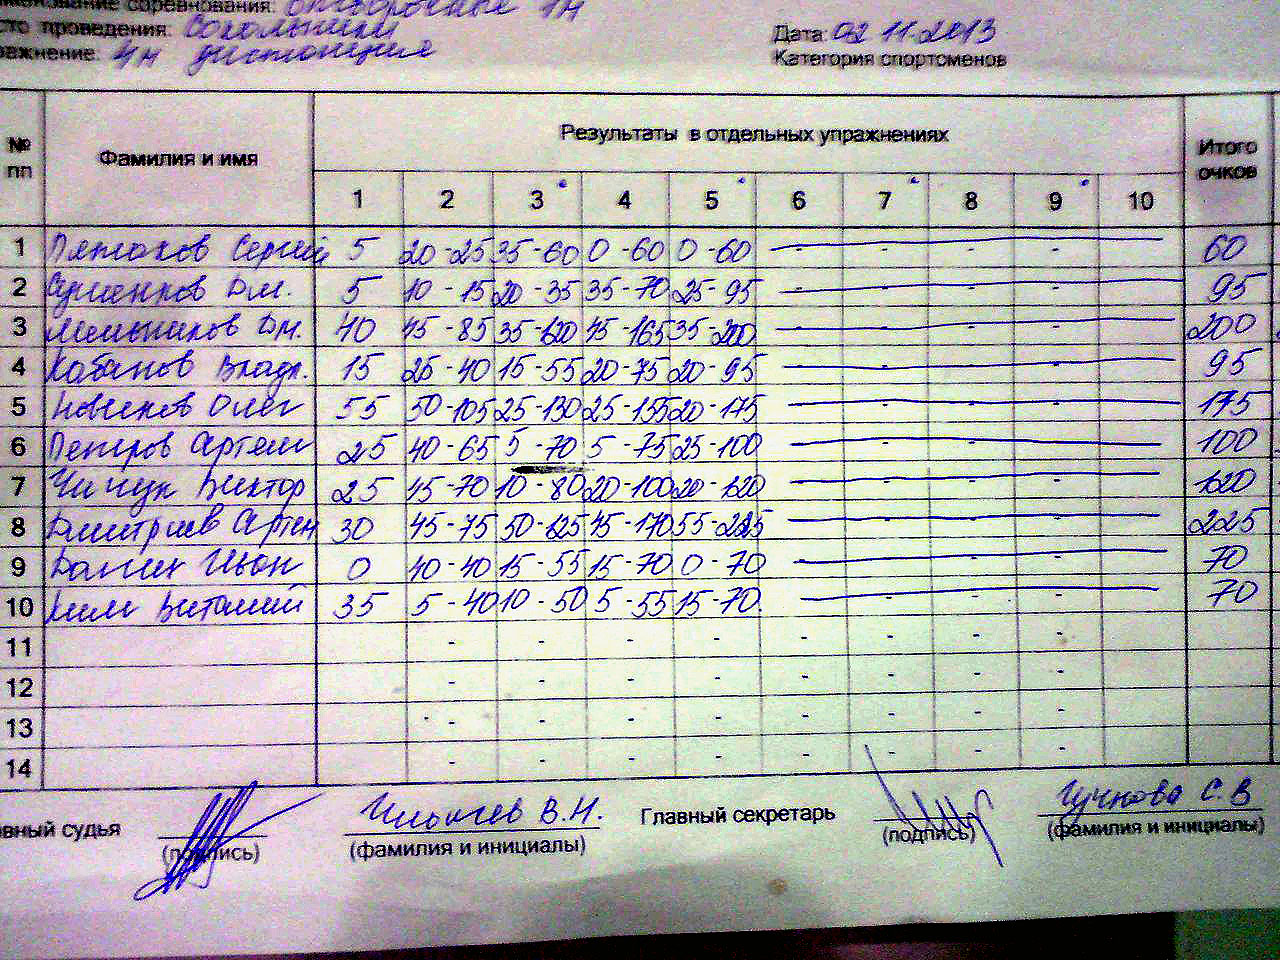 именование соревнования: Отборочные 1м
сто проведения: Сокольники
ражнение: 4м дистанция
Дата: 02 11.2013
Категория спортсменов
№ пп Фамилия и имя Результаты в отдельных упражнениях Итого очков
1 2 3 4 5 6 7 8 9 10
1 Пятаков Сергей 5 20-25 35-60 0-60 0-60 - - - - 60
2 Дм. 5 10-15 20-35 35-70 25-95 - - - - 95
3 Мельников Дм. 40 45-85 35-120 45-165 35-200 - - - - 200
4 Кабанов Влад. 15 25-40 15-55 20-75 20-95 - - - - 95
5 Новиков Олег 55 50-105 25-130 25-155 20-175 - - - - 175
6 Петров Артем 25 40-65 5-70 5-75 25-100 - - - - 100
7 Чичук Виктор 25 45-70 10-80 20-100 20-120 - - - - 120
8 Дмитриев Артем 30 45-75 50-125 45-170 55-225 - - - - 225
9 Иван 0 40-40 15-55 15-70 0-70 - - - - 70
10 Ким Виталий 35 5-40 10-50 5-55 15-70 - - - - 70
11 - - - - - - - -
12 - - - - - - - -
13 - - - - - - - -
14 - - - - - - - -
авный судья В.Н. Главный секретарь Гучкова С.В
(подпись) (фамилия и инициалы) (подпись) (фамилия и инициалы)